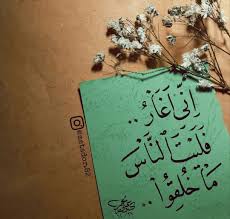 إِنِّي أَغَارُ ..
فَلَيْتَ النَّاسَ
مَا خُلِقُوا ..